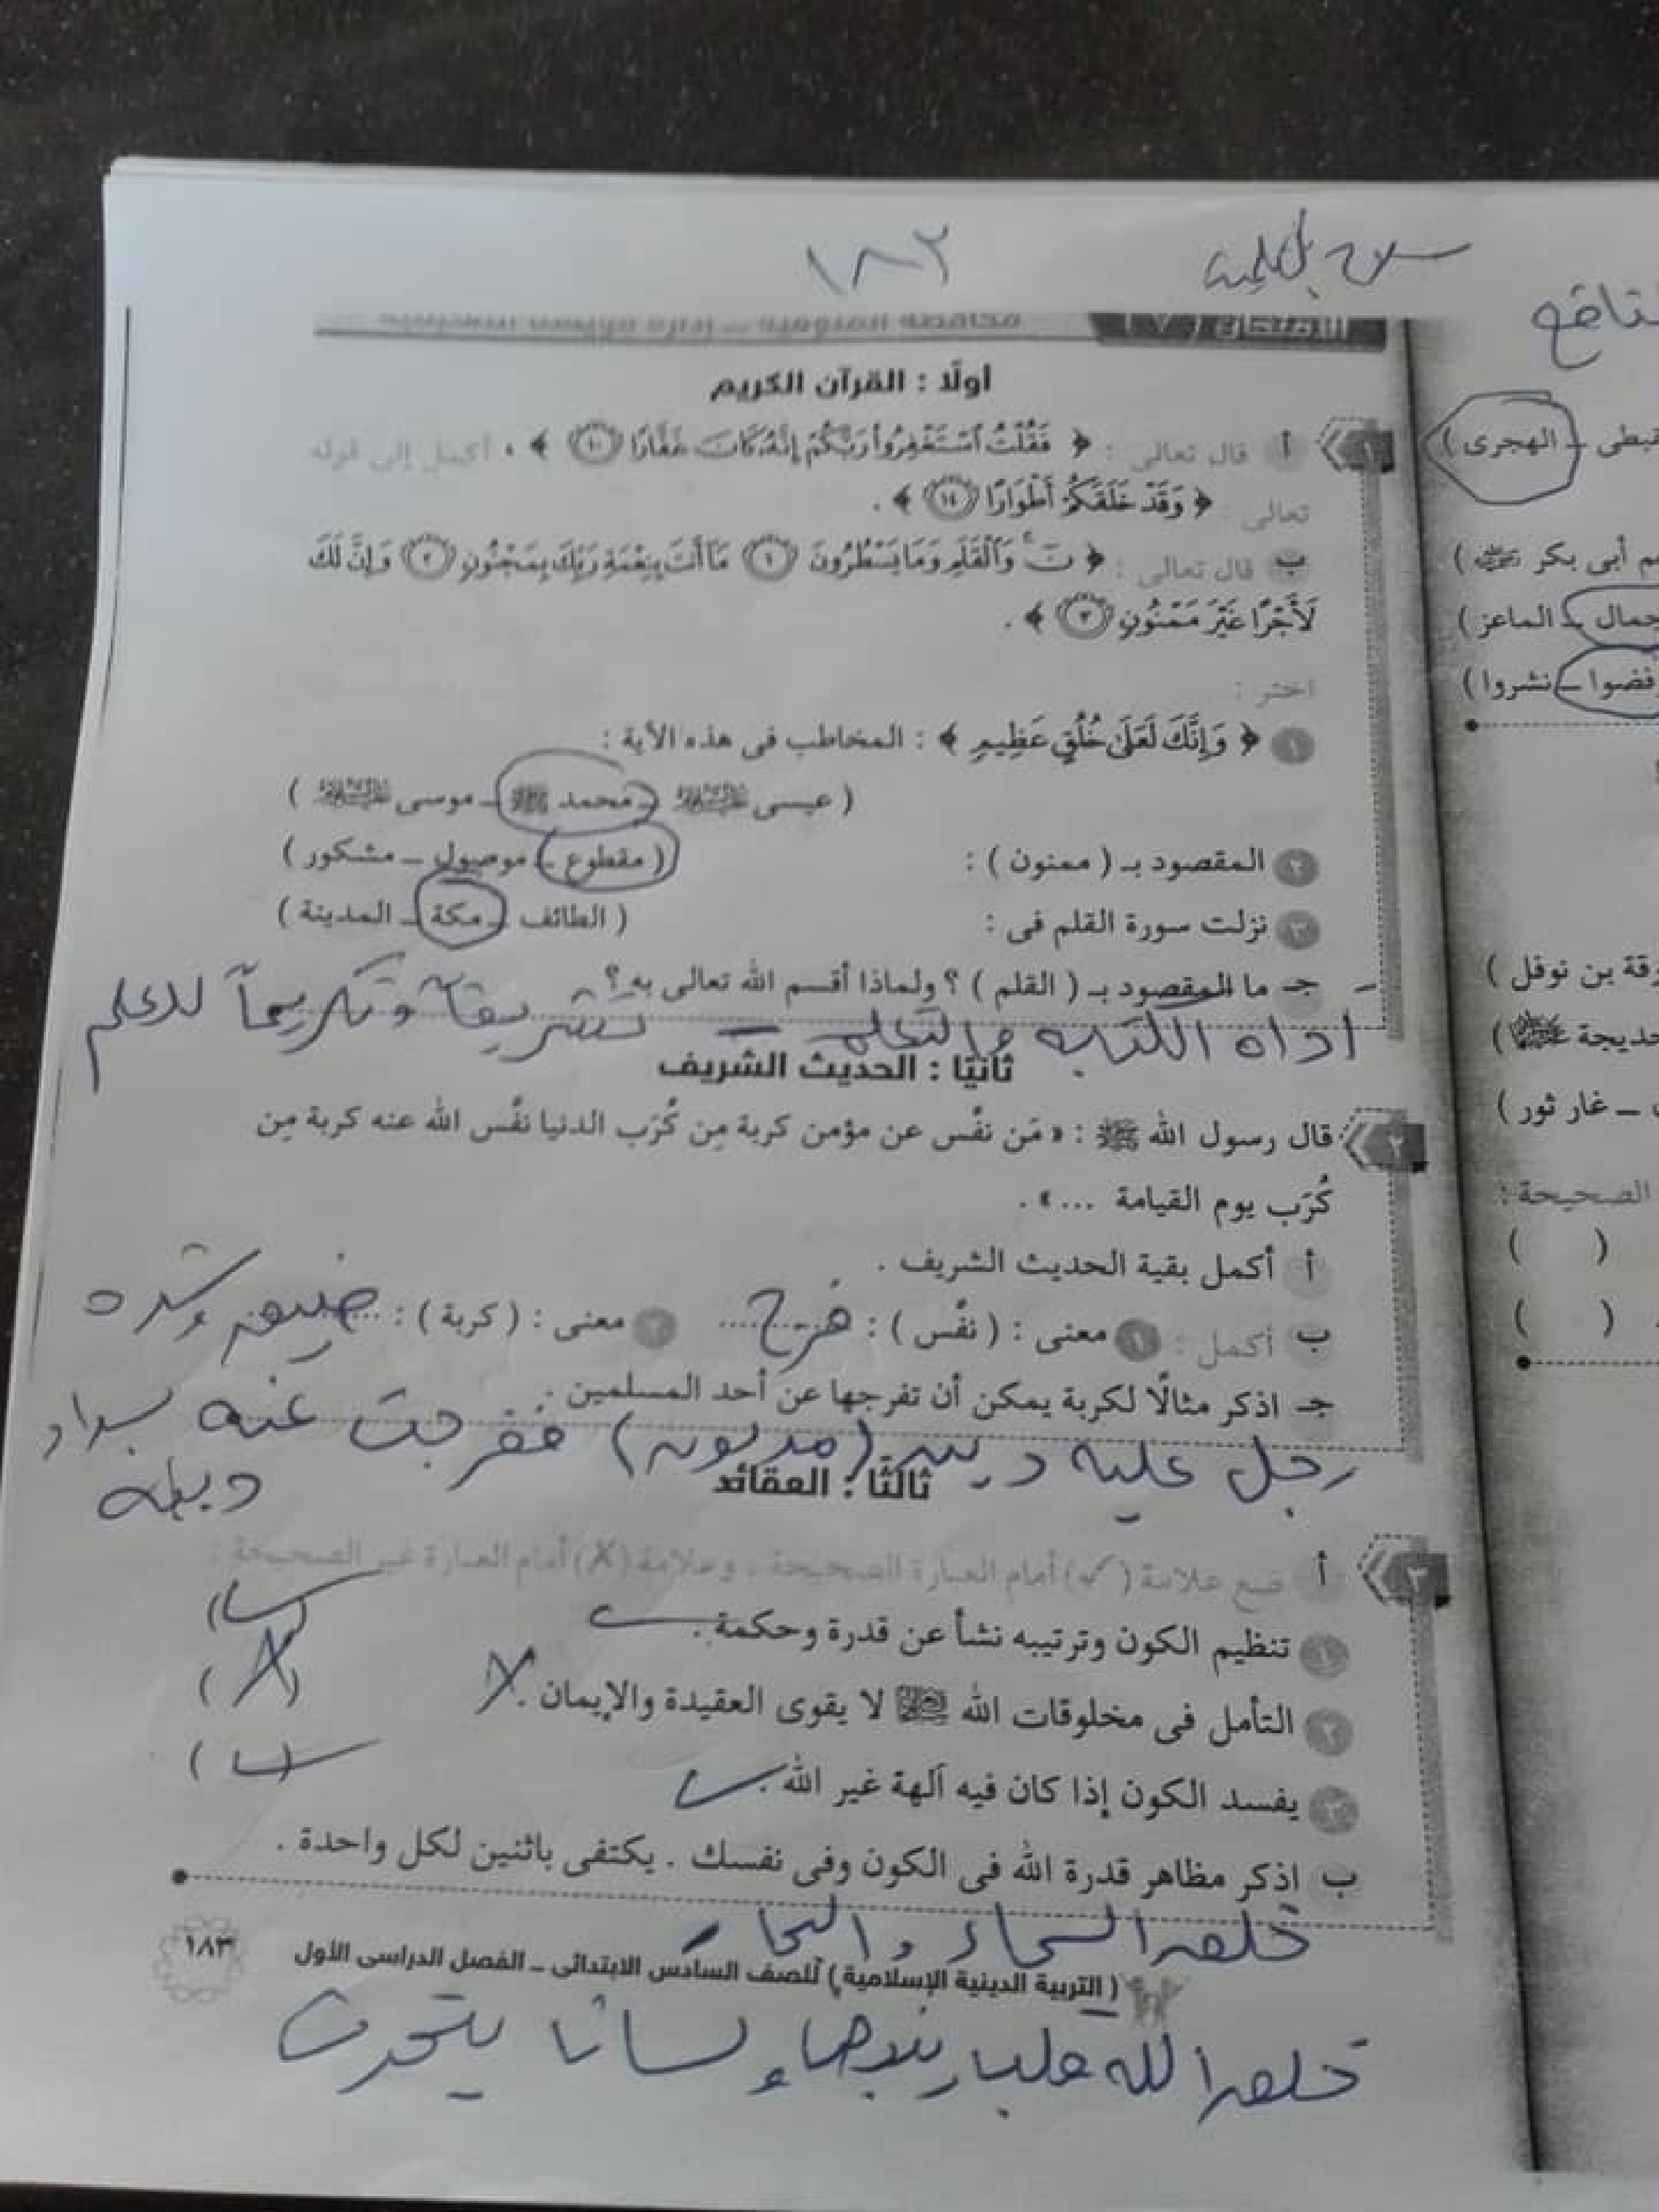 سلاح التلميذ ١٨٣
الامتحان (٧) محافظة المنوفية – إدارة
أولًا : القرآن الكريم
١ أ قال تعالى : ﴿ فَقُلْتُ ٱسْتَغْفِرُوا۟ رَبَّكُمْ إِنَّهُۥ كَانَ غَفَّارًا ١٠ ﴾ ، أكمل إلى قوله
تعالى : ﴿ وَقَدْ خَلَقَكُمْ أَطْوَارًا ١٤ ﴾ .
ب قال تعالى : ﴿ نٓ وَٱلْقَلَمِ وَمَا يَسْطُرُونَ ١ مَآ أَنتَ بِنِعْمَةِ رَبِّكَ بِمَجْنُونٍ ٢ وَإِنَّ لَكَ
لَأَجْرًا غَيْرَ مَمْنُونٍ ٣ ﴾ .
اختر :
١ ﴿ وَإِنَّكَ لَعَلَىٰ خُلُقٍ عَظِيمٍ ﴾ : المخاطب فى هذه الآية :
( عيسى عليه السلام – محمد ﷺ – موسى عليه السلام )
٢ المقصود بـ ( ممنون ) : ( مقطوع – موصول – مشكور )
٣ نزلت سورة القلم فى : ( الطائف – مكة – المدينة )
جـ ما المقصود بـ ( القلم ) ؟ ولماذا أقسم الله تعالى به ؟
أداه الكتابه والتعلم – تشريفا وتكريماً للعلم
ثانيًا : الحديث الشريف
٢ قال رسول الله ﷺ : « مَن نفَّس عن مؤمن كربة مِن كُرَب الدنيا نفَّس الله عنه كربة مِن
كُرَب يوم القيامة ... » .
أ أكمل بقية الحديث الشريف .
ب أكمل : ١ معنى : ( نفَّس ) : فرج ٢ معنى : ( كربة ) : ضيق وشده
جـ اذكر مثالًا لكربة يمكن أن تفرجها عن أحد المسلمين .
رجل عليه دين (مديون) ففرجت عنه بسداد
دينه
ثالثًا : العقائد
٣ أ ضع علامة (✓) أمام العبارة الصحيحة ، وعلامة (✗) أمام العبارة غير الصحيحة :
١ تنظيم الكون وترتيبه نشأ عن قدرة وحكمة . ✓ (✓)
٢ التأمل فى مخلوقات الله لا يقوى العقيدة والإيمان . ✗ (✗)
٣ يفسد الكون إذا كان فيه آلهة غير الله . ✓ (✓)
ب اذكر مظاهر قدرة الله فى الكون وفى نفسك . يكتفى باثنين لكل واحدة .
خلق السماء والبحار
( التربية الدينية الإسلامية ) للصف السادس الابتدائى – الفصل الدراسى الأول ١٨٣
خلق الله قلبا ينبض ولسانا يتحدث
الهجرى )
م أبى بكر )
جمال – الماعز )
فضوا – نشروا )
رقة بن نوفل )
خديجة )
– غار ثور )
الصحيحة :
( )
( )